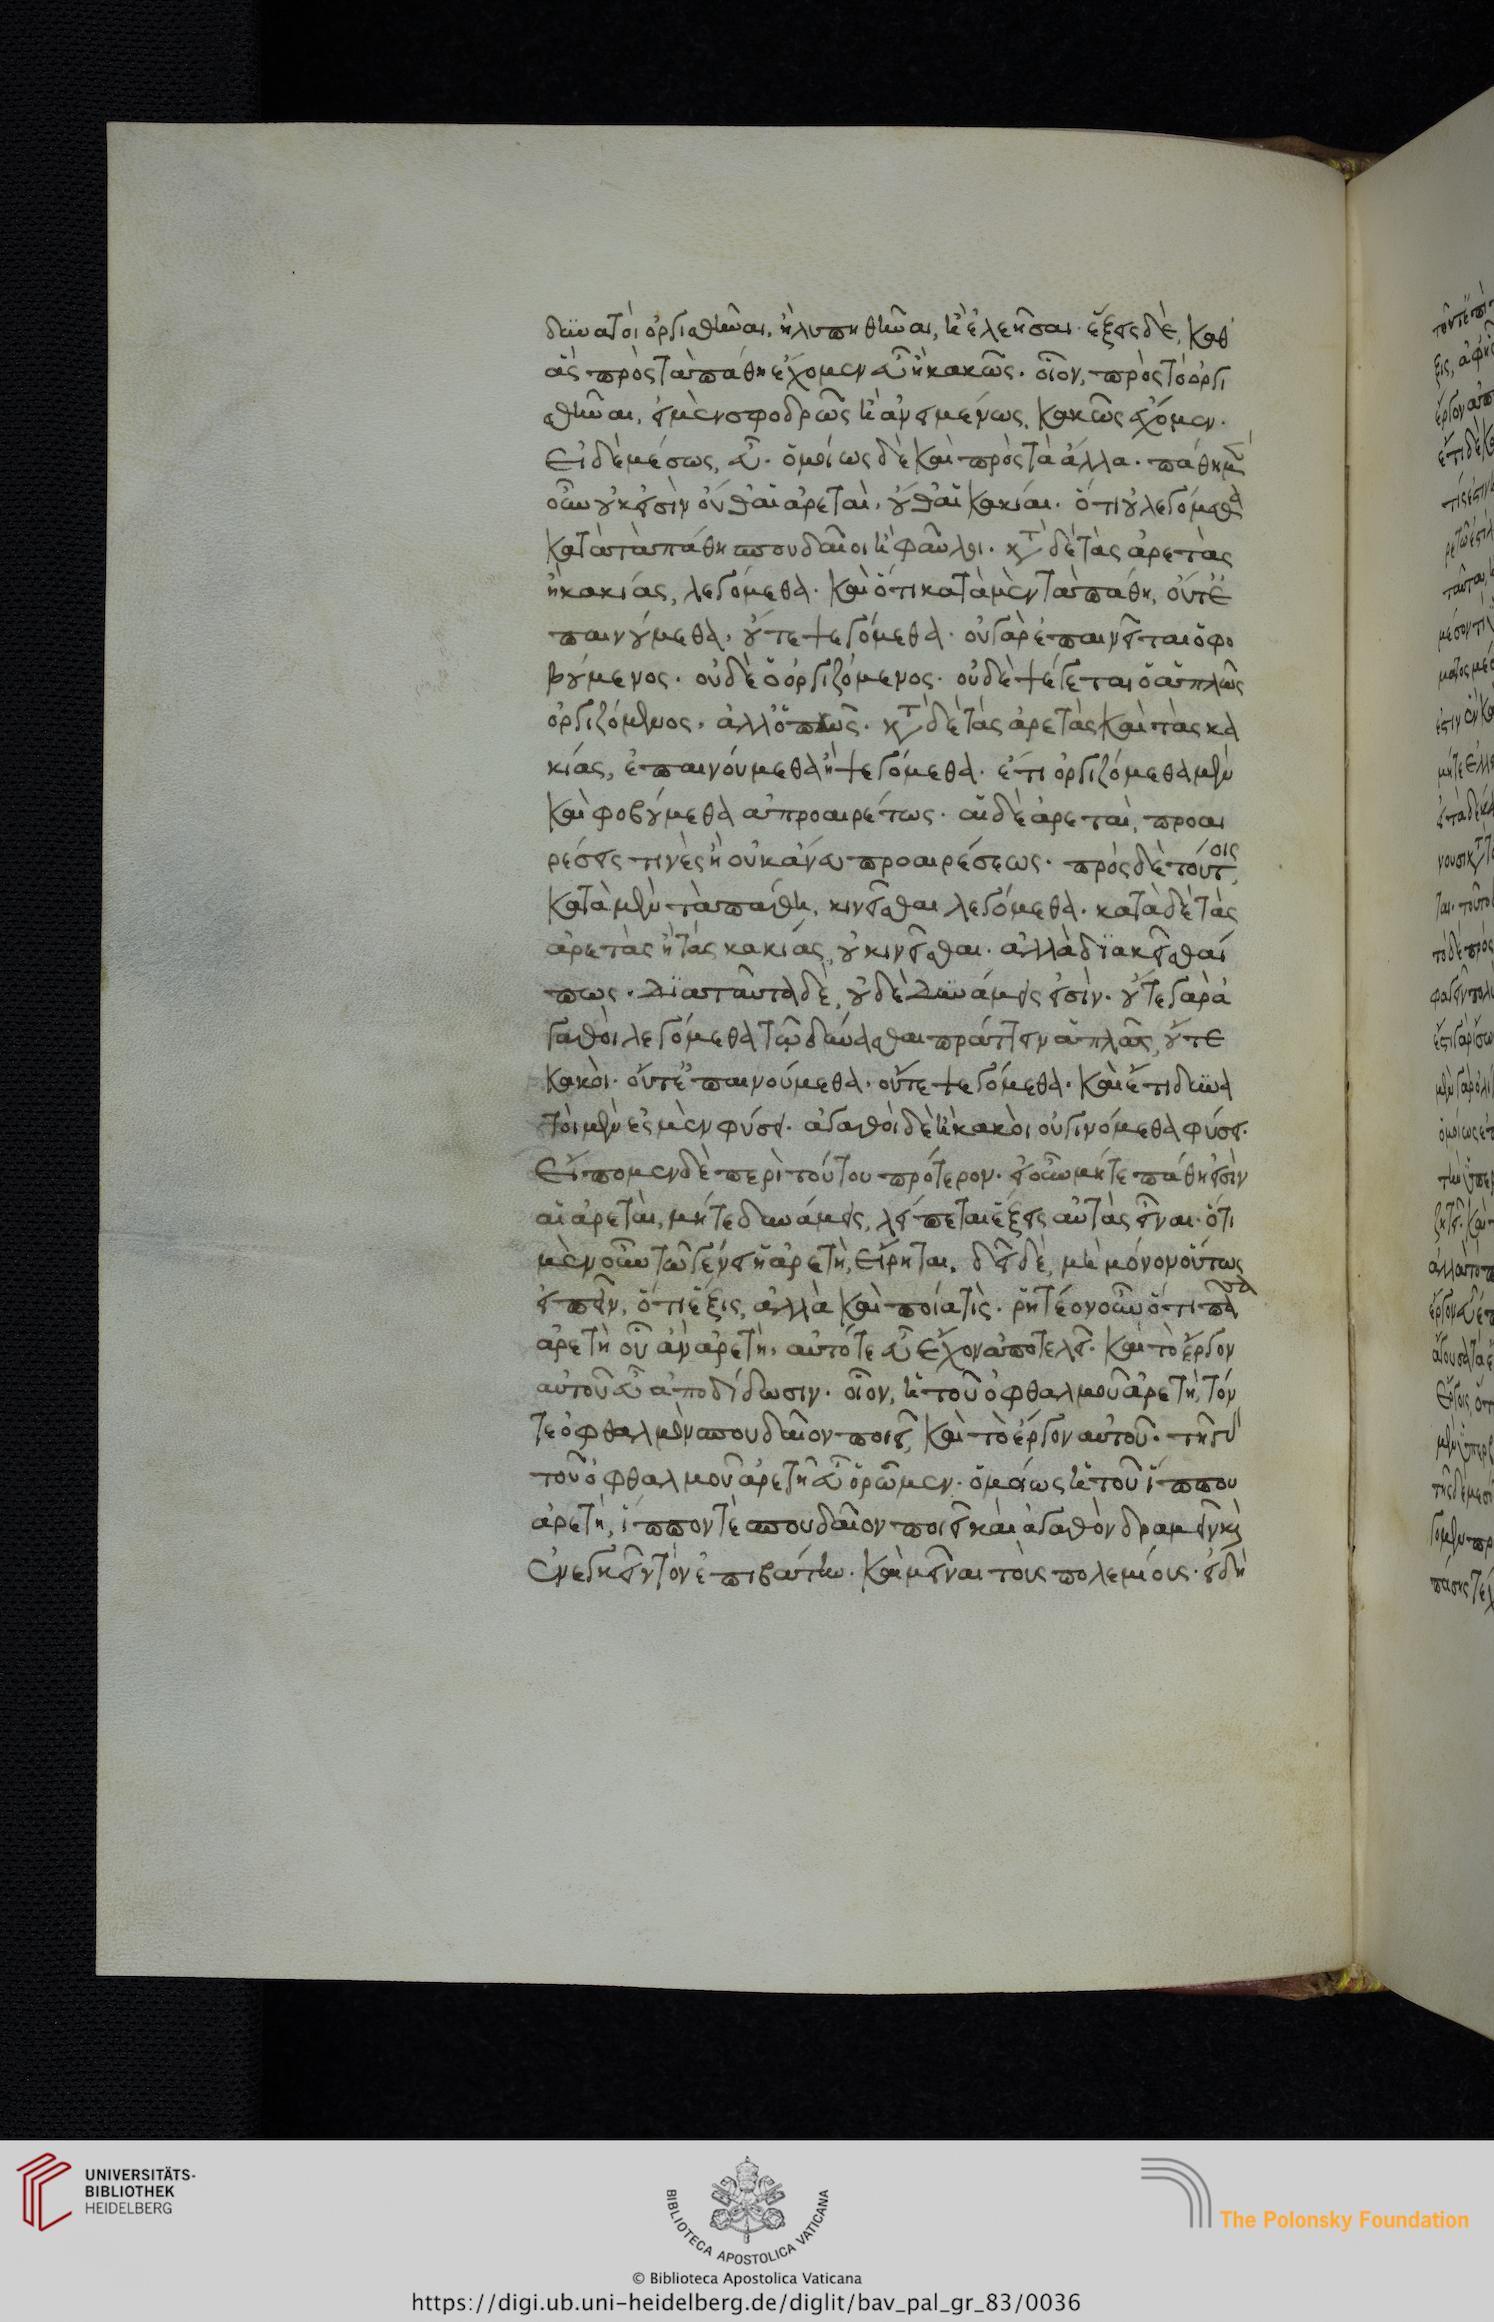 δυνατοὶ ὀργισθῆναι, ἢ λυπηθῆναι, ἢ ἐλεῆσαι. ἕξεις δὲ, καθ'
ἃς πρὸς τὰ πάθη ἔχομεν εὖ ἢ κακῶς. οἷον, πρὸς τὸ ὀργι
σθῆναι, εἰ μὲν σφοδρῶς ἢ ἀνειμένως, κακῶς ἔχομεν.
εἰ δὲ μέσως, εὖ. ὁμοίως δὲ καὶ πρὸς τὰ ἄλλα. πάθη μὲν
οὖν οὐκ εἰσὶν οὔθ' αἱ ἀρεταὶ, οὔθ' αἱ κακίαι. ὅτι οὐ λεγόμεθα
κατὰ τὰ πάθη σπουδαῖοι ἢ φαῦλοι. κατὰ δὲ τὰς ἀρετὰς
ἢ κακίας, λεγόμεθα. καὶ ὅτι κατὰ μὲν τὰ πάθη, οὔτε ἐ
παινούμεθα, οὔτε ψεγόμεθα. οὐ γὰρ ἐπαινεῖται ὁ φο
βούμενος. οὐδὲ ὁ ὀργιζόμενος. οὐδὲ ψέγεται ὁ ἁπλῶς
ὀργιζόμενος, ἀλλ' ὁ πῶς. κατὰ δὲ τὰς ἀρετὰς καὶ τὰς κα
κίας, ἐπαινούμεθα ἢ ψεγόμεθα. ἔτι ὀργιζόμεθα μὲν
καὶ φοβούμεθα ἀπροαιρέτως. αἱ δὲ ἀρεταὶ, προαι
ρέσεις τινὲς ἢ οὐκ ἄνευ προαιρέσεως. πρὸς δὲ τούτοις
κατὰ μὲν τὰ πάθη, κινεῖσθαι λεγόμεθα. κατὰ δὲ τὰς
ἀρετὰς ἢ τὰς κακίας, οὐ κινεῖσθαι. ἀλλὰ διακεῖσθαί
πως. διὰ ταῦτα δὲ, οὐδὲ δυνάμεις εἰσίν. οὔτε γὰρ ἀ
γαθοὶ λεγόμεθα τῷ δύνασθαι πράττειν ἁπλῶς, οὔτε
κακοὶ. οὔτε ἐπαινούμεθα. οὔτε ψεγόμεθα. καὶ ἔτι δυνα
τοὶ μὲν ἐσμὲν φύσει. ἀγαθοὶ δὲ ἢ κακοὶ οὐ γινόμεθα φύσει.
εἴπομεν δὲ περὶ τούτου πρότερον. εἰ οὖν μήτε πάθη εἰσὶν
αἱ ἀρεταὶ, μήτε δυνάμεις, λείπεται ἕξεις αὐτὰς εἶναι. ὅτι
μὲν οὖν τῷ γένει ἡ ἀρετὴ, εἴρηται. δεῖ δὲ, μὴ μόνον οὕτως
εἰπεῖν, ὅτι ἕξις, ἀλλὰ καὶ ποία τὶς. ῥητέον οὖν ὅτι πᾶσα
ἀρετὴ οὗ ἂν ἀρετὴ, αὐτό τε εὖ ἔχον ἀποτελεῖ. καὶ τὸ ἔργον
αὐτοῦ εὖ ἀποδίδωσιν. οἷον, ἡ τοῦ ὀφθαλμοῦ ἀρετὴ, τόν
τε ὀφθαλμὸν σπουδαῖον ποιεῖ, καὶ τὸ ἔργον αὐτοῦ. τῇ γὰρ
τοῦ ὀφθαλμοῦ ἀρετῇ εὖ ὁρῶμεν. ὁμοίως ἡ τοῦ ἵππου
ἀρετὴ, ἵππον τὲ σπουδαῖον ποιεῖ καὶ ἀγαθὸν δραμεῖν καὶ
ἐνεγκεῖν τὸν ἐπιβάτην. καὶ μεῖναι τοὺς πολεμίους. εἰ δὴ
UNIVERSITÄTS-
BIBLIOTHEK
HEIDELBERG
BIBLIOTECA APOSTOLICA VATICANA
© Biblioteca Apostolica Vaticana
The Polonsky Foundation
https://digi.ub.uni-heidelberg.de/diglit/bav_pal_gr_83/0036